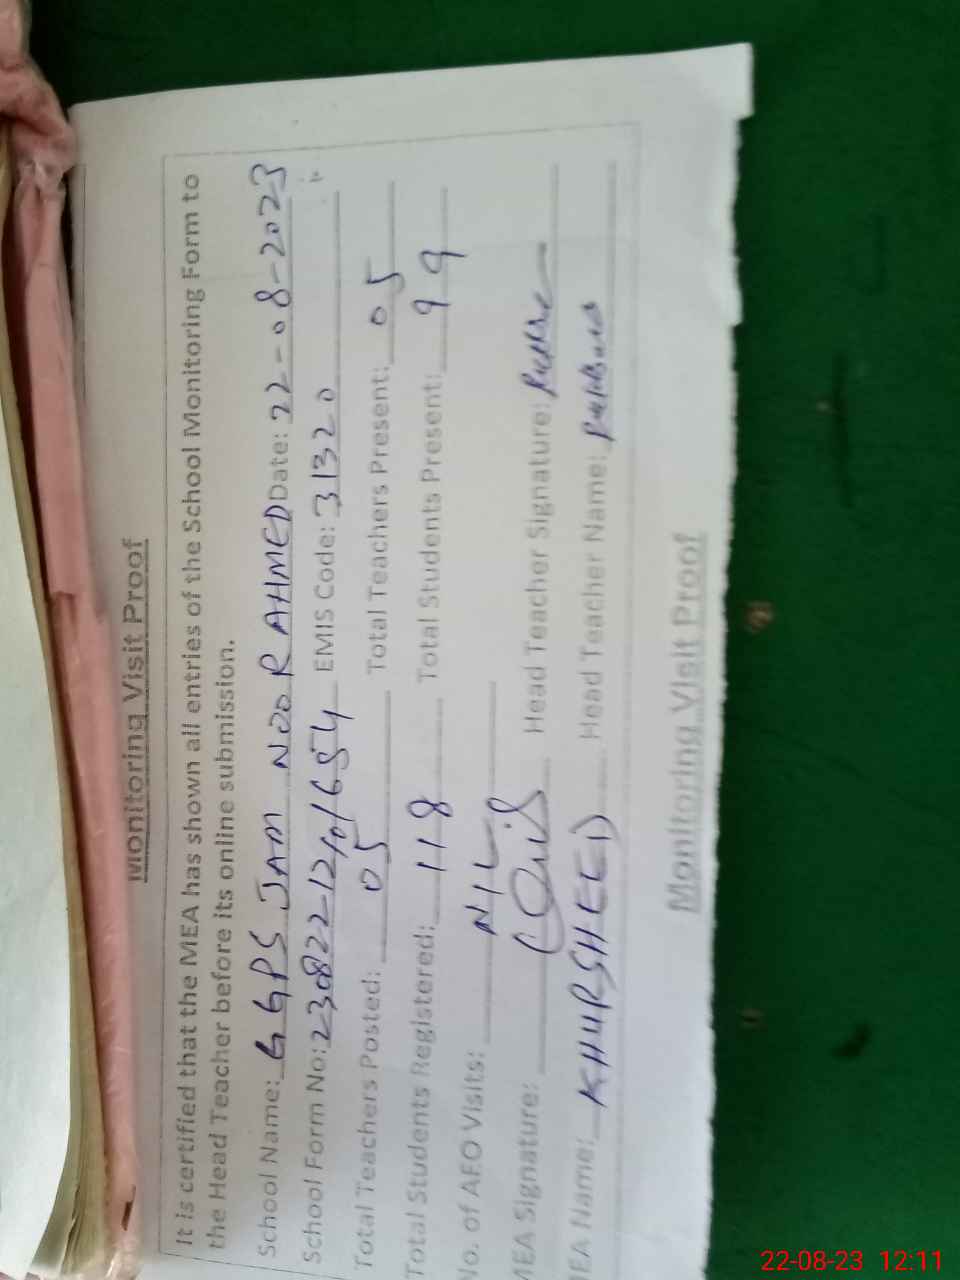 Monitoring Visit Proof
It is certified that the MEA has shown all entries of the School Monitoring Form to
the Head Teacher before its online submission.
School Name: GGPS JAM NOOR AHMED Date: 22-08-2023
School Form No: EMIS Code: 31320
Total Teachers Posted: 05 Total Teachers Present: 05
Total Students Registered: 118 Total Students Present: 99
No. of AEO Visits: NIL
MEA Signature: Head Teacher Signature:
MEA Name: KHURSHEED Head Teacher Name:
Monitoring Visit Proof
22-08-23 12:11